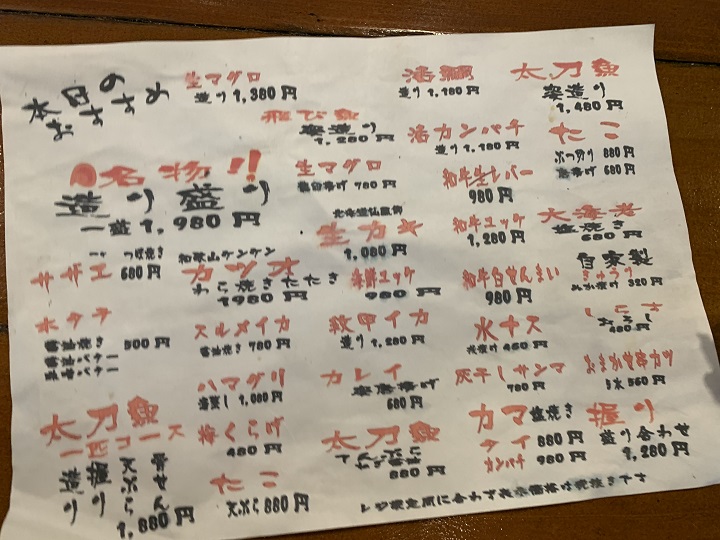 本日の
おすすめ
生マグロ
造り 1,380円
飛び魚
姿造り
1,280円
活鯛
造り 1,180円
太刀魚
姿造り
1,480円
名物!!
造り盛り
一盛 1,980円
生マグロ
780円
活カンパチ
造り 1,180円
たこ
ぶつ切り 880円
唐揚げ 680円
和牛生レバー
980円
北海道仙鳳趾
生カキ
1,080円
和牛ユッケ
1,280円
大海老
塩焼き
680円
サザエ
つぼ焼き
680円
和歌山ケンケン
カツオ
わら焼きたたき
1980円
海鮮ユッケ
980円
和牛白せんまい
980円
自家製
きゅうり
ぬか漬け 320円
ホタテ
醤油焼き
醤油バター
900円
スルメイカ
醤油焼き 780円
紋甲イカ
造り 1,280円
水ナス
浅漬け 460円
しらす
おろし
480円
ハマグリ
酒蒸し 1,080円
カレイ
姿唐揚げ
680円
灰干しサンマ
780円
おまかせ串カツ
5本 560円
太刀魚
一匹コース
造り
握り
天ぷら
骨せん
1,880円
梅くらげ
480円
たこ
天ぷら 880円
太刀魚
てんぷら
880円
カマ塩焼き
タイ 880円
カンパチ 980円
握り
盛り合わせ
1,280円
レジ設定間に合わず表示価格は税抜きです